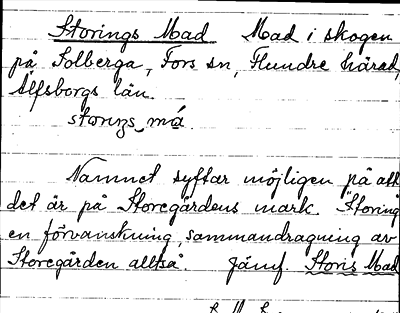 Storings Mad Mad i skogen
på Solberga, Fors sn, Flundre härad,
Älfsborgs län.
storıŋs_má.
Namnet syftar möjligen på att
det är på Storegårdens mark. "Storing"
en förvanskning, sammandragning av
Storegården alltså. Jämf. Storis Mad